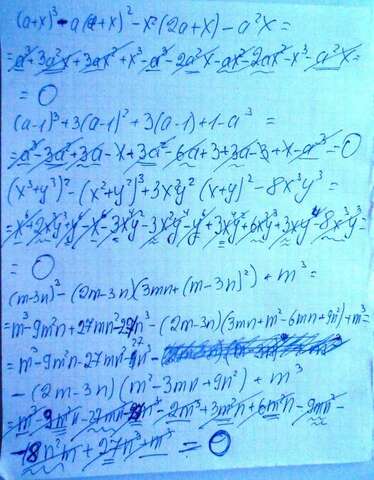 (a+x)³-a(a+x)²-x²(2a+x)-a²x=
=a³+3a²x+3ax²+x³-a³-2a²x-ax²-2ax²-x³-a²x=
=0
(a-1)³+3(a-1)²+3(a-1)+1-a³=
=a³-3a²+3a-1+3a²-6a+3+3a-3+1-a³=0
(x³+y³)²-(x²+y²)³+3x²y²(x+y)²-8x³y³=
=x⁶+2x³y³+y⁶-x⁶-3x⁴y²-3x²y⁴-y⁶+3x⁴y²+6x³y³+3x²y⁴-8x³y³=
=0
(m-3n)³-(2m-3n)(3mn+(m-3n)²)+m³=
=m³-9m²n+27mn²-27n³-(2m-3n)(3mn+m²-6mn+9n²)+m³=
=m³-9m²n-27mn²-27n³-
-(2m-3n)(m²-3mn+9n²)+m³
=m³-9m²n-27mn²-27n³-2m³+3m²n+6m²n-9mn²-
-18n²m+27n³+m³=0